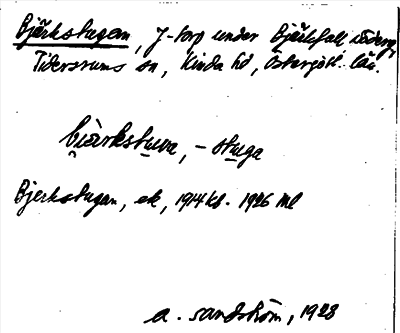 Bjärkstugan, j-torp under Bjälbfall, söderg,
Tidersrums sn, Kinda hd, Östergötl. län.
bi̯ärkstuva, -stuga
Bjerkstugan, ek, 1914 kb. 1926 ml
A. Sandström, 1928